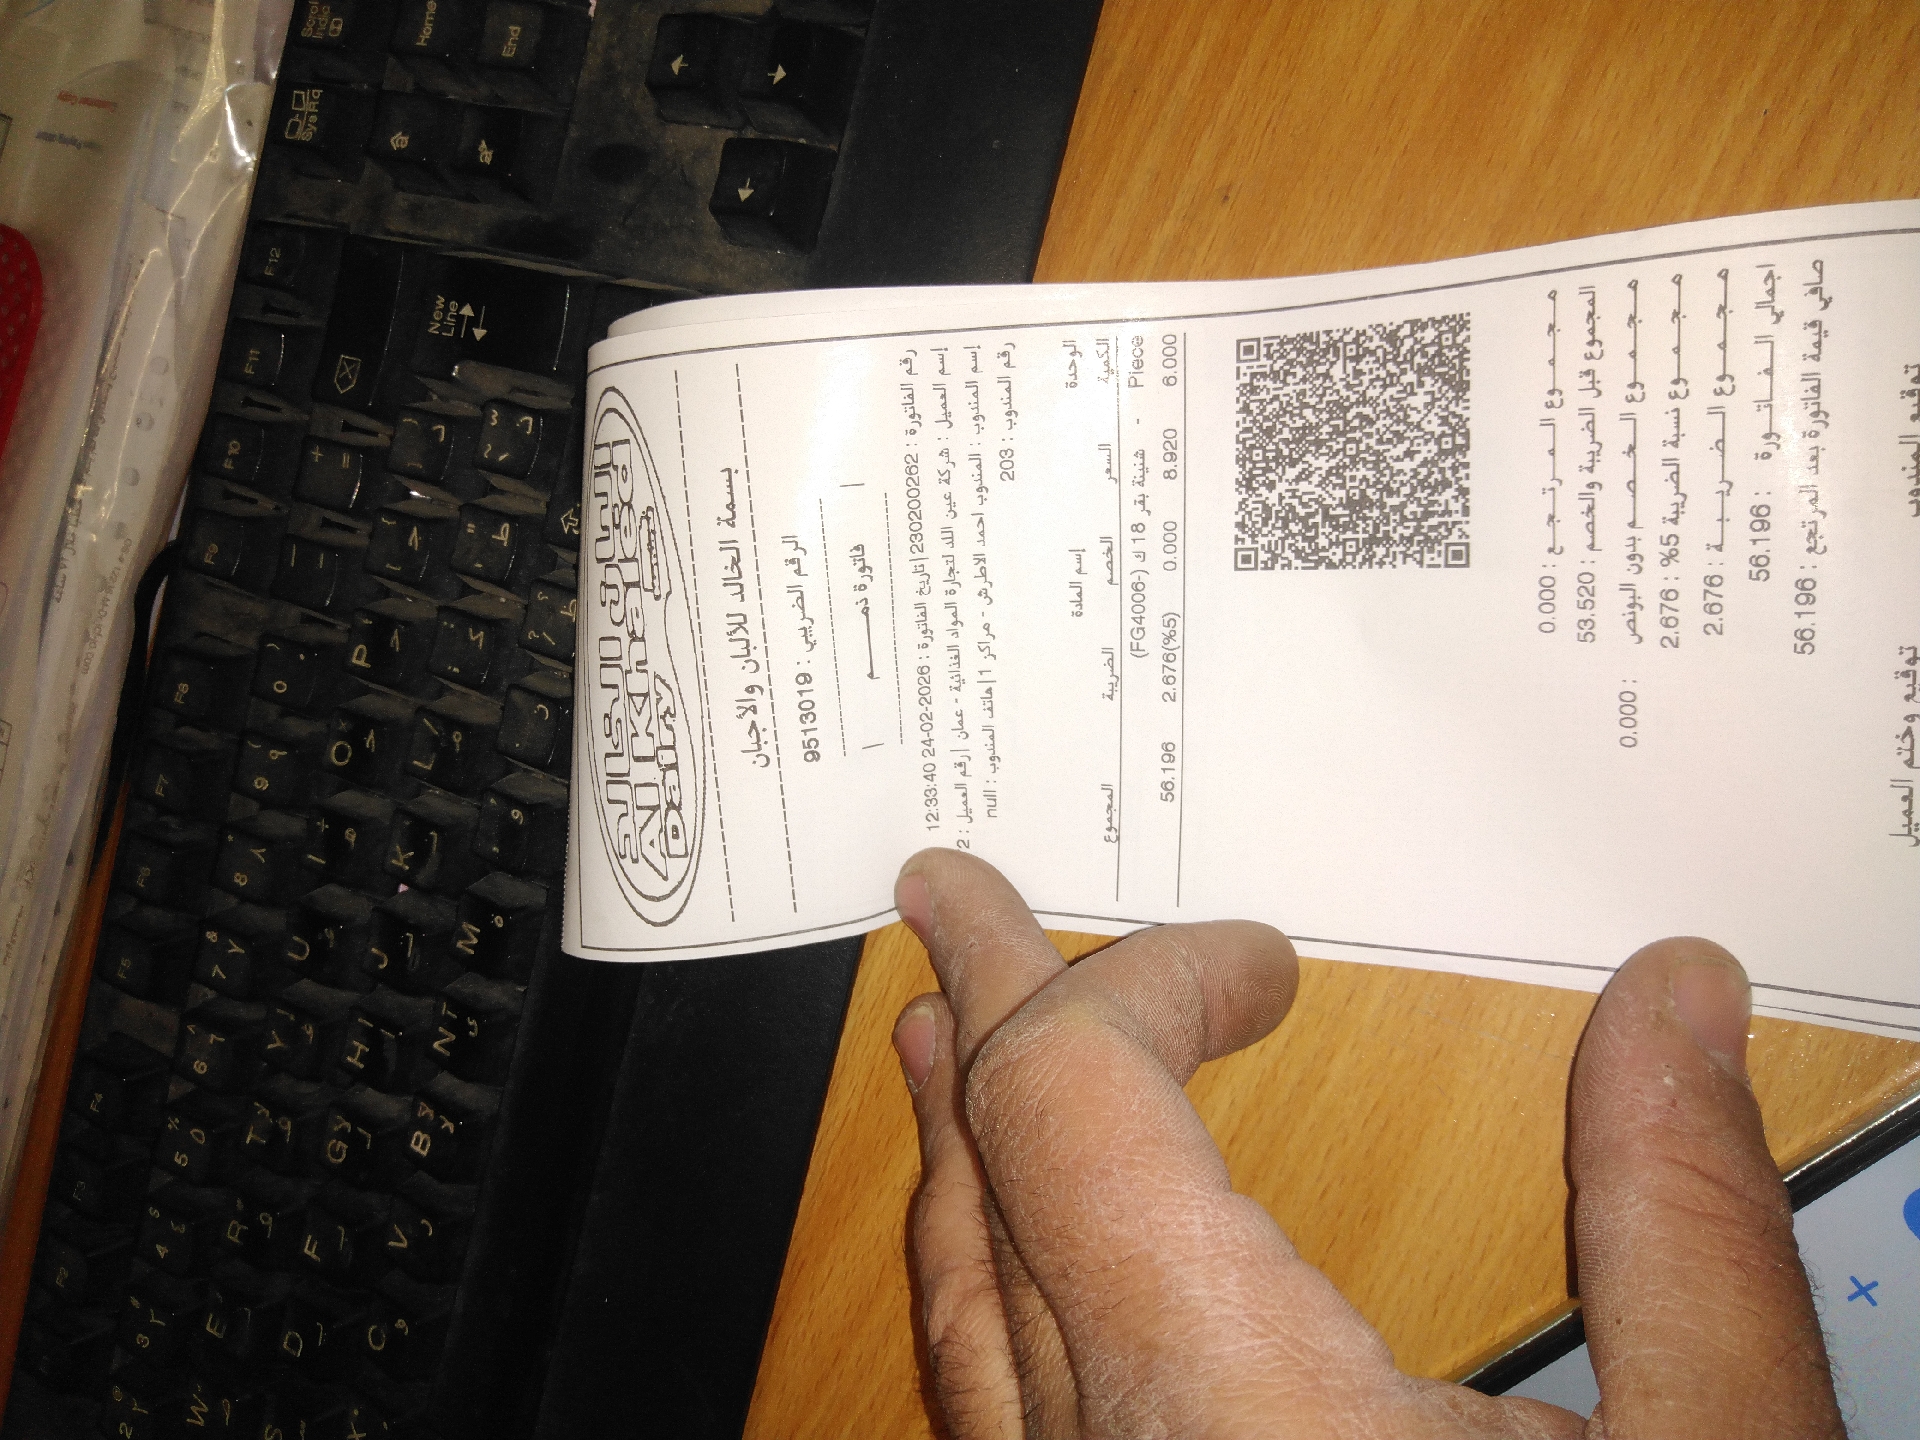 البان الخالد
Al Khaled
Dairy
بسمة الخالد للألبان والأجبان
الرقم الضريبي : 9513019
فاتورة ذمــــــم
رقم الفاتورة : 230200262|تاريخ الفاتورة : 2026-02-24 12:33:40
إسم العميل : شركة عين اللد لتجارة المواد الغذائية - عمان |رقم العميل : 2
إسم المندوب : المندوب احمد الاطرش - مراكز 1|هاتف المندوب : null
رقم المندوب : 203
الوحدة إسم المادة
الكمية السعر الخصم الضريبة المجموع
Piece - شنينة بقر 18 ك (-FG4006)
6.000 8.920 0.000 2.676(%5) 56.196
مـجـمـوع المـرتـجـع : 0.000
المجموع قبل الضريبة والخصم : 53.520
مـجـمـوع الـخـصـم بدون البونص : 0.000
مـجـمـوع نسبة الضريبة 5% : 2.676
مـجـمـوع الـضـريـبـة : 2.676
اجمالي الـفـاتـورة : 56.196
صافي قيمة الفاتورة بعد المرتجع : 56.196
توقيع المندوب توقيع وختم العميل
Home
End
SysRq
New
Line
F12
F11
F10
F9
F8
F7
F6
F5
F4
F3
F2